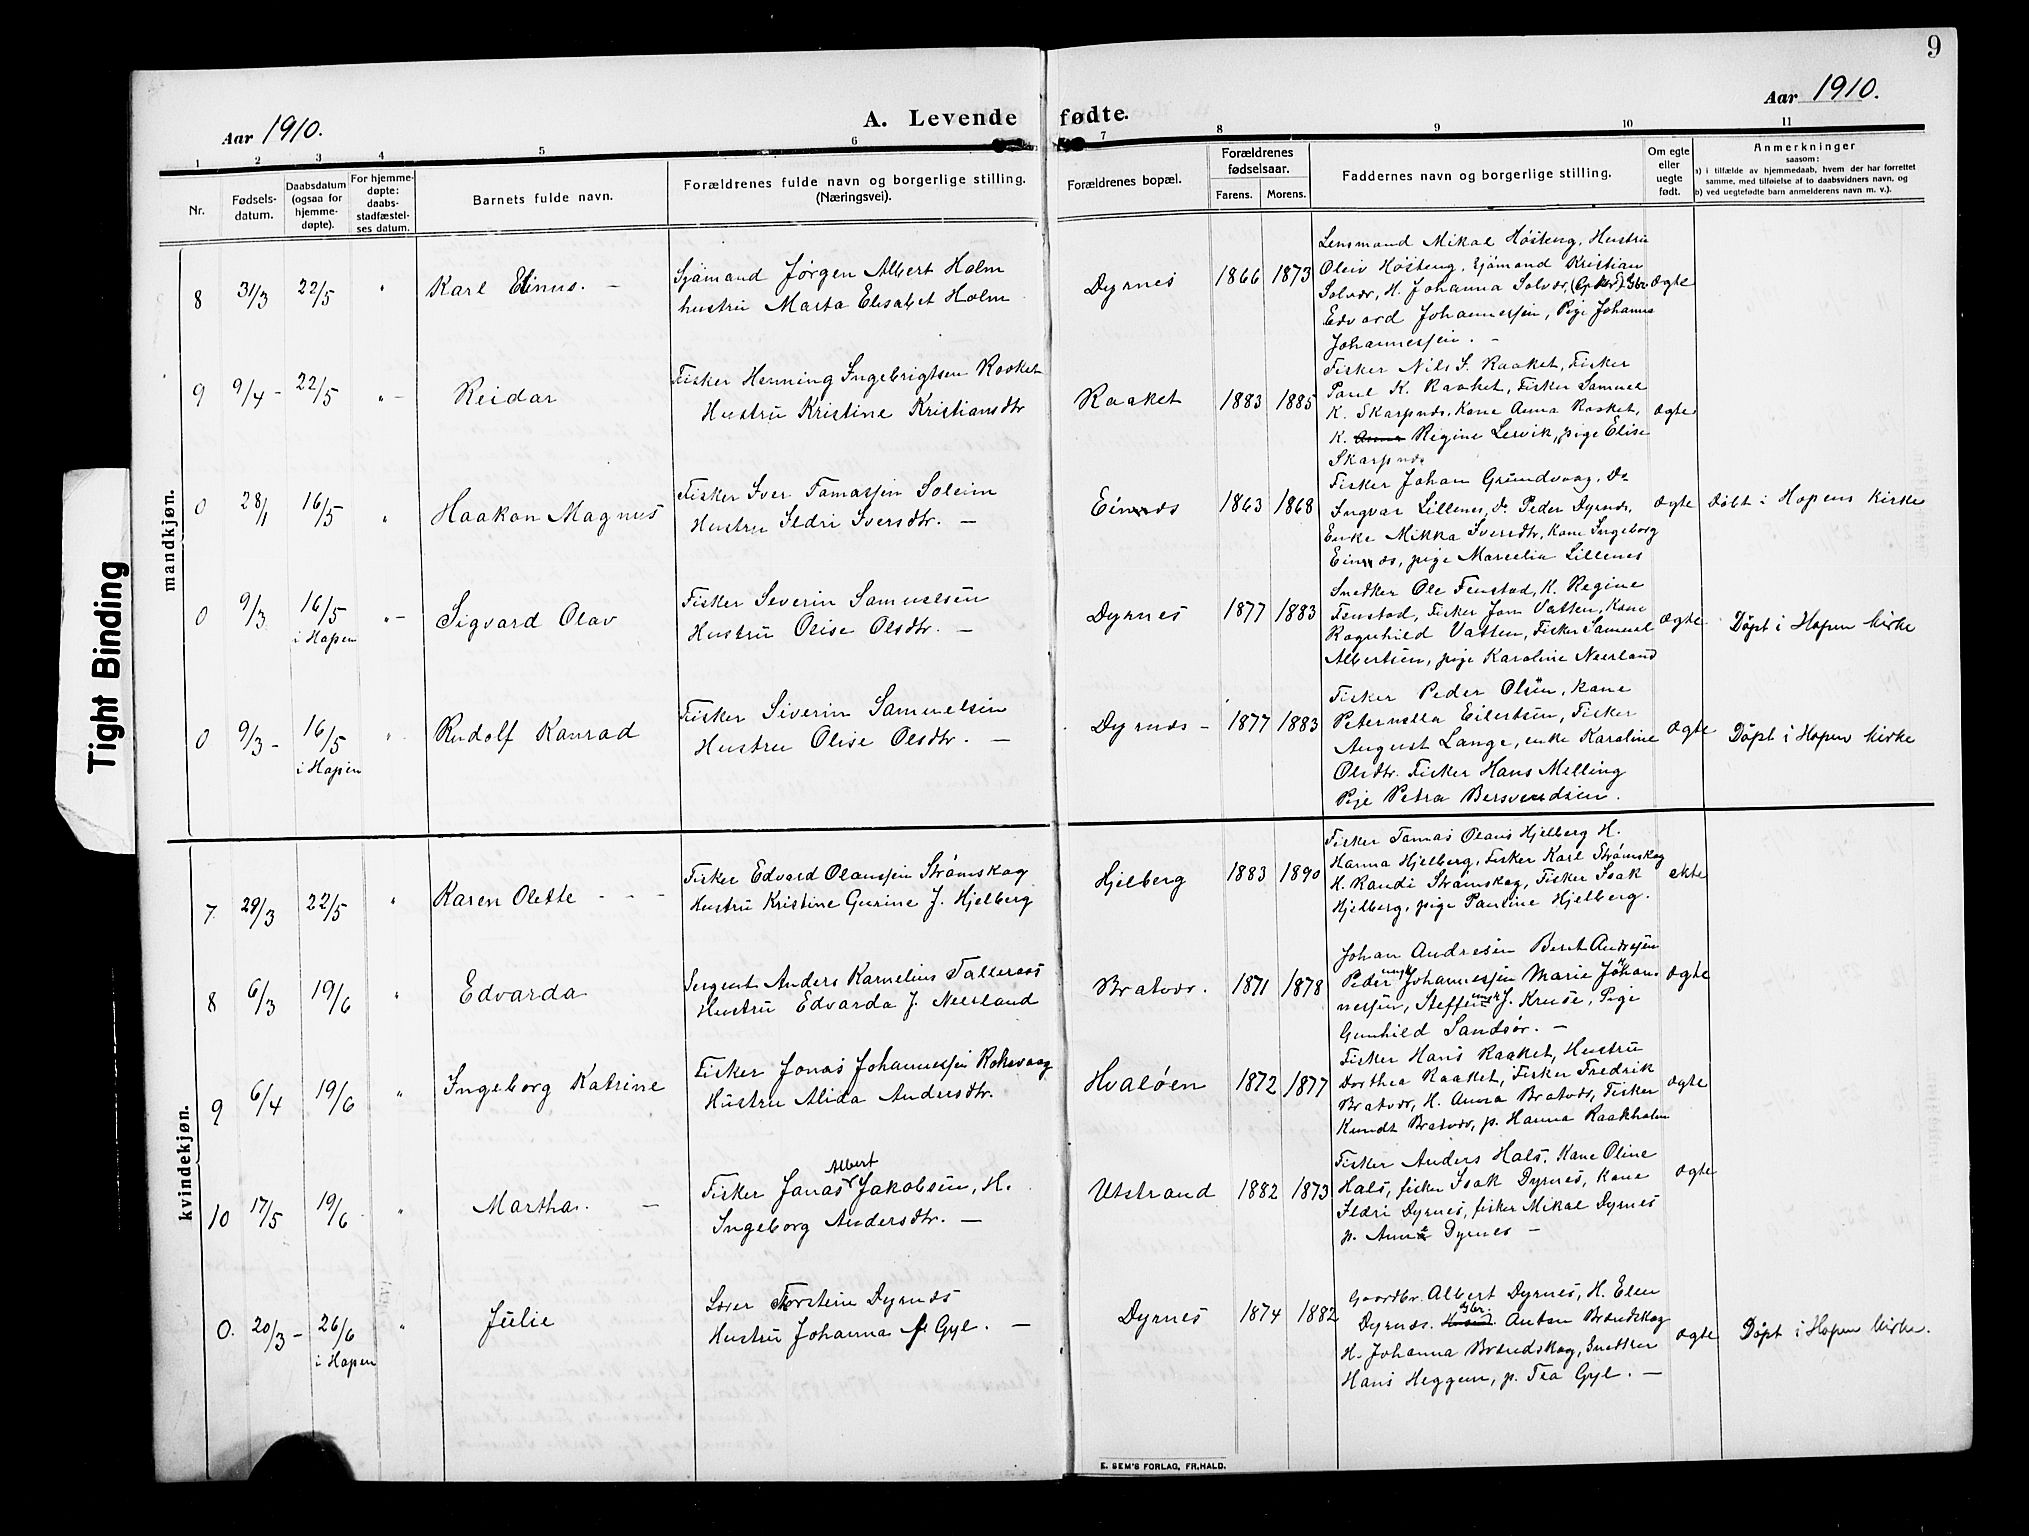 9
Aar 1910.
A. Levende fødte.
Aar 1910.
1 2 3 4 5 6 7 8 9 10 11
Nr.
Fødsels-
datum.
Daabsdatum
(ogsaa for
hjemme-
døpte).
For hjemme-
døpte:
daabs-
stadfæstel-
ses datum.
Barnets fulde navn.
Forældrenes fulde navn og borgerlige stilling.
(Næringsvei).
Forældrenes bopæl.
Forældrenes
fødselsaar.
Farens. Morens.
Faddernes navn og borgerlige stilling.
Om egte
eller
uegte
født.
Anmerkninger
saasom:
a) i tilfælde av hjemmedaab, hvem der har forrettet
samme, med tilføielse af to daabsvidners navn, og
b) ved uegtefødte barn anmelderens navn m. v.).
mandkjøn.
8 31/3 22/5 " Karl Elinus. –
Sjömand Jørgen Albert Holm
hustru Marta Elisabet Holm
Dyrnes 1866 1873
Lensmand Mikal Hösteng, Hustru
Oleiv Hösteng, Sjömand Kristian
Solvær, H. Johanna Solvær,
Edvard Johannessen, Pige Johanna
Johannessen. –
ægte
9 9/4 – 22/5 " – Reidar
Fisker Henning Ingebrigtsen Raaket
Hustru Kristine Kristiansdtr
Raaket 1883 1885
Fisker Nils S. Raaket, Fisker
Paul K. Raaket, Fisker Samuel
K. Skarpnes, Kone Anna Raaket,
K. Anna Regine Lervik, pige Elise
Skarpnes
ægte
0 28/1 16/5 " Haakon Magnus
Fisker Iver Tomassen Soleim
Hustru Ildri Iversdtr. –
Einnes 1863 1868
Fisker Johan Grundvaag, Do
Ingvar Lillenes, Do Peder Dyrnes,
Enke Mikka Iversdtr, Kone Ingeborg
Einnes, pige Marcelia Lillenes
ægte Döbt i Hopens Kirke
0 9/3 16/5 " – Sigvard Olav
i Hopen
Fisker Severin Samuelsen
Hustru Olise Olsdtr. –
Dyrnes 1877 1883
Snedker Ole Fenstad, K. Regine
Fenstad, Fisker Jon Vatten, Kone
Ragnhild Vatten, Fisker Samuel
Albertsen, pige Karoline Neerland
ægte Döpt i Hopen Kirke
0 9/3 – 16/5 " Rudolf Konrad
i Hopen
Fisker Siverin Samuelsen
Hustru Olise Olsdtr. –
Dyrnes – 1877 1883
Fisker Peder Olsen, Kone
Peternella Eilertsen, Fisker
August Lange, enke Karoline
Olsdtr. Fisker Hans Melling
Pige Petra Bersvendsen.
ægte Döpt i Hopen Kirke
kvindekjøn.
7 29/3 22/5 " Karen Olette – – –
Fisker Edvard Olaussen Strömskag
Hustru Kristine Gurine J. Hjelberg
Hjelberg 1883 1890
Fisker Tomas Olaus Hjelberg H.
Hanna Hjelberg, Fisker Karl Strömskag
H. Randi Strömskag, Fisker Isak
Hjelberg, pige Pauline Hjelberg.
ekte
8 6/3 19/6 " Edvarda
Sergent Anders Kornelius Talleraas
Hustru Edvarda J. Neerland
Bratvær. 1871 1878
Johan Andresen Berit Andresen
Peder Johannessen Marie Johan-
nessen, Steffen J. Kruse, Pige
Gunhild Sandsör. –
ægte
9 6/4 19/6 " Ingeborg Katrine
Fisker Jonas Johannessen Roksvaag
Hustru Alida Andersdtr.
Hvaløen 1872 1877
Fisker Hans Raaket, Hustru
Dorthea Raaket, Fisker Fredrik
Bratvær, H. Anna Bratvær, Fisker
Knudt Bratvær, p. Hanna Raakholm
ægte
10 17/5 19/6 " Martha. –
Albert
Fisker Jonas Jakobsen, H.
Ingeborg Andersdtr. –
Utstrand 1882 1873
Fisker Anders Hals, Kone Oline
Hals, fisker Isak Dyrnes, Kone
Ildri Dyrnes, fisker Mikal Dyrnes
p. Anna Dyrnes –
ægte
0. 20/3 – 26/6 " Julie
i Hopen
Lærer Torstein Dyrnes
Hustru Johanna Gyl. –
Dyrnes 1874 1882
Gaardbr. Albert Dyrnes, H. Elen
Dyrnes. Gbr. Anton Brændskag
H. Johanna Brændskag, Snekker
Hans Heggem, p. Tea Gyl. –
ægte Döpt i Hopen Kirke.
E. SEM'S FORLAG, FR.HALD.
Tight Binding